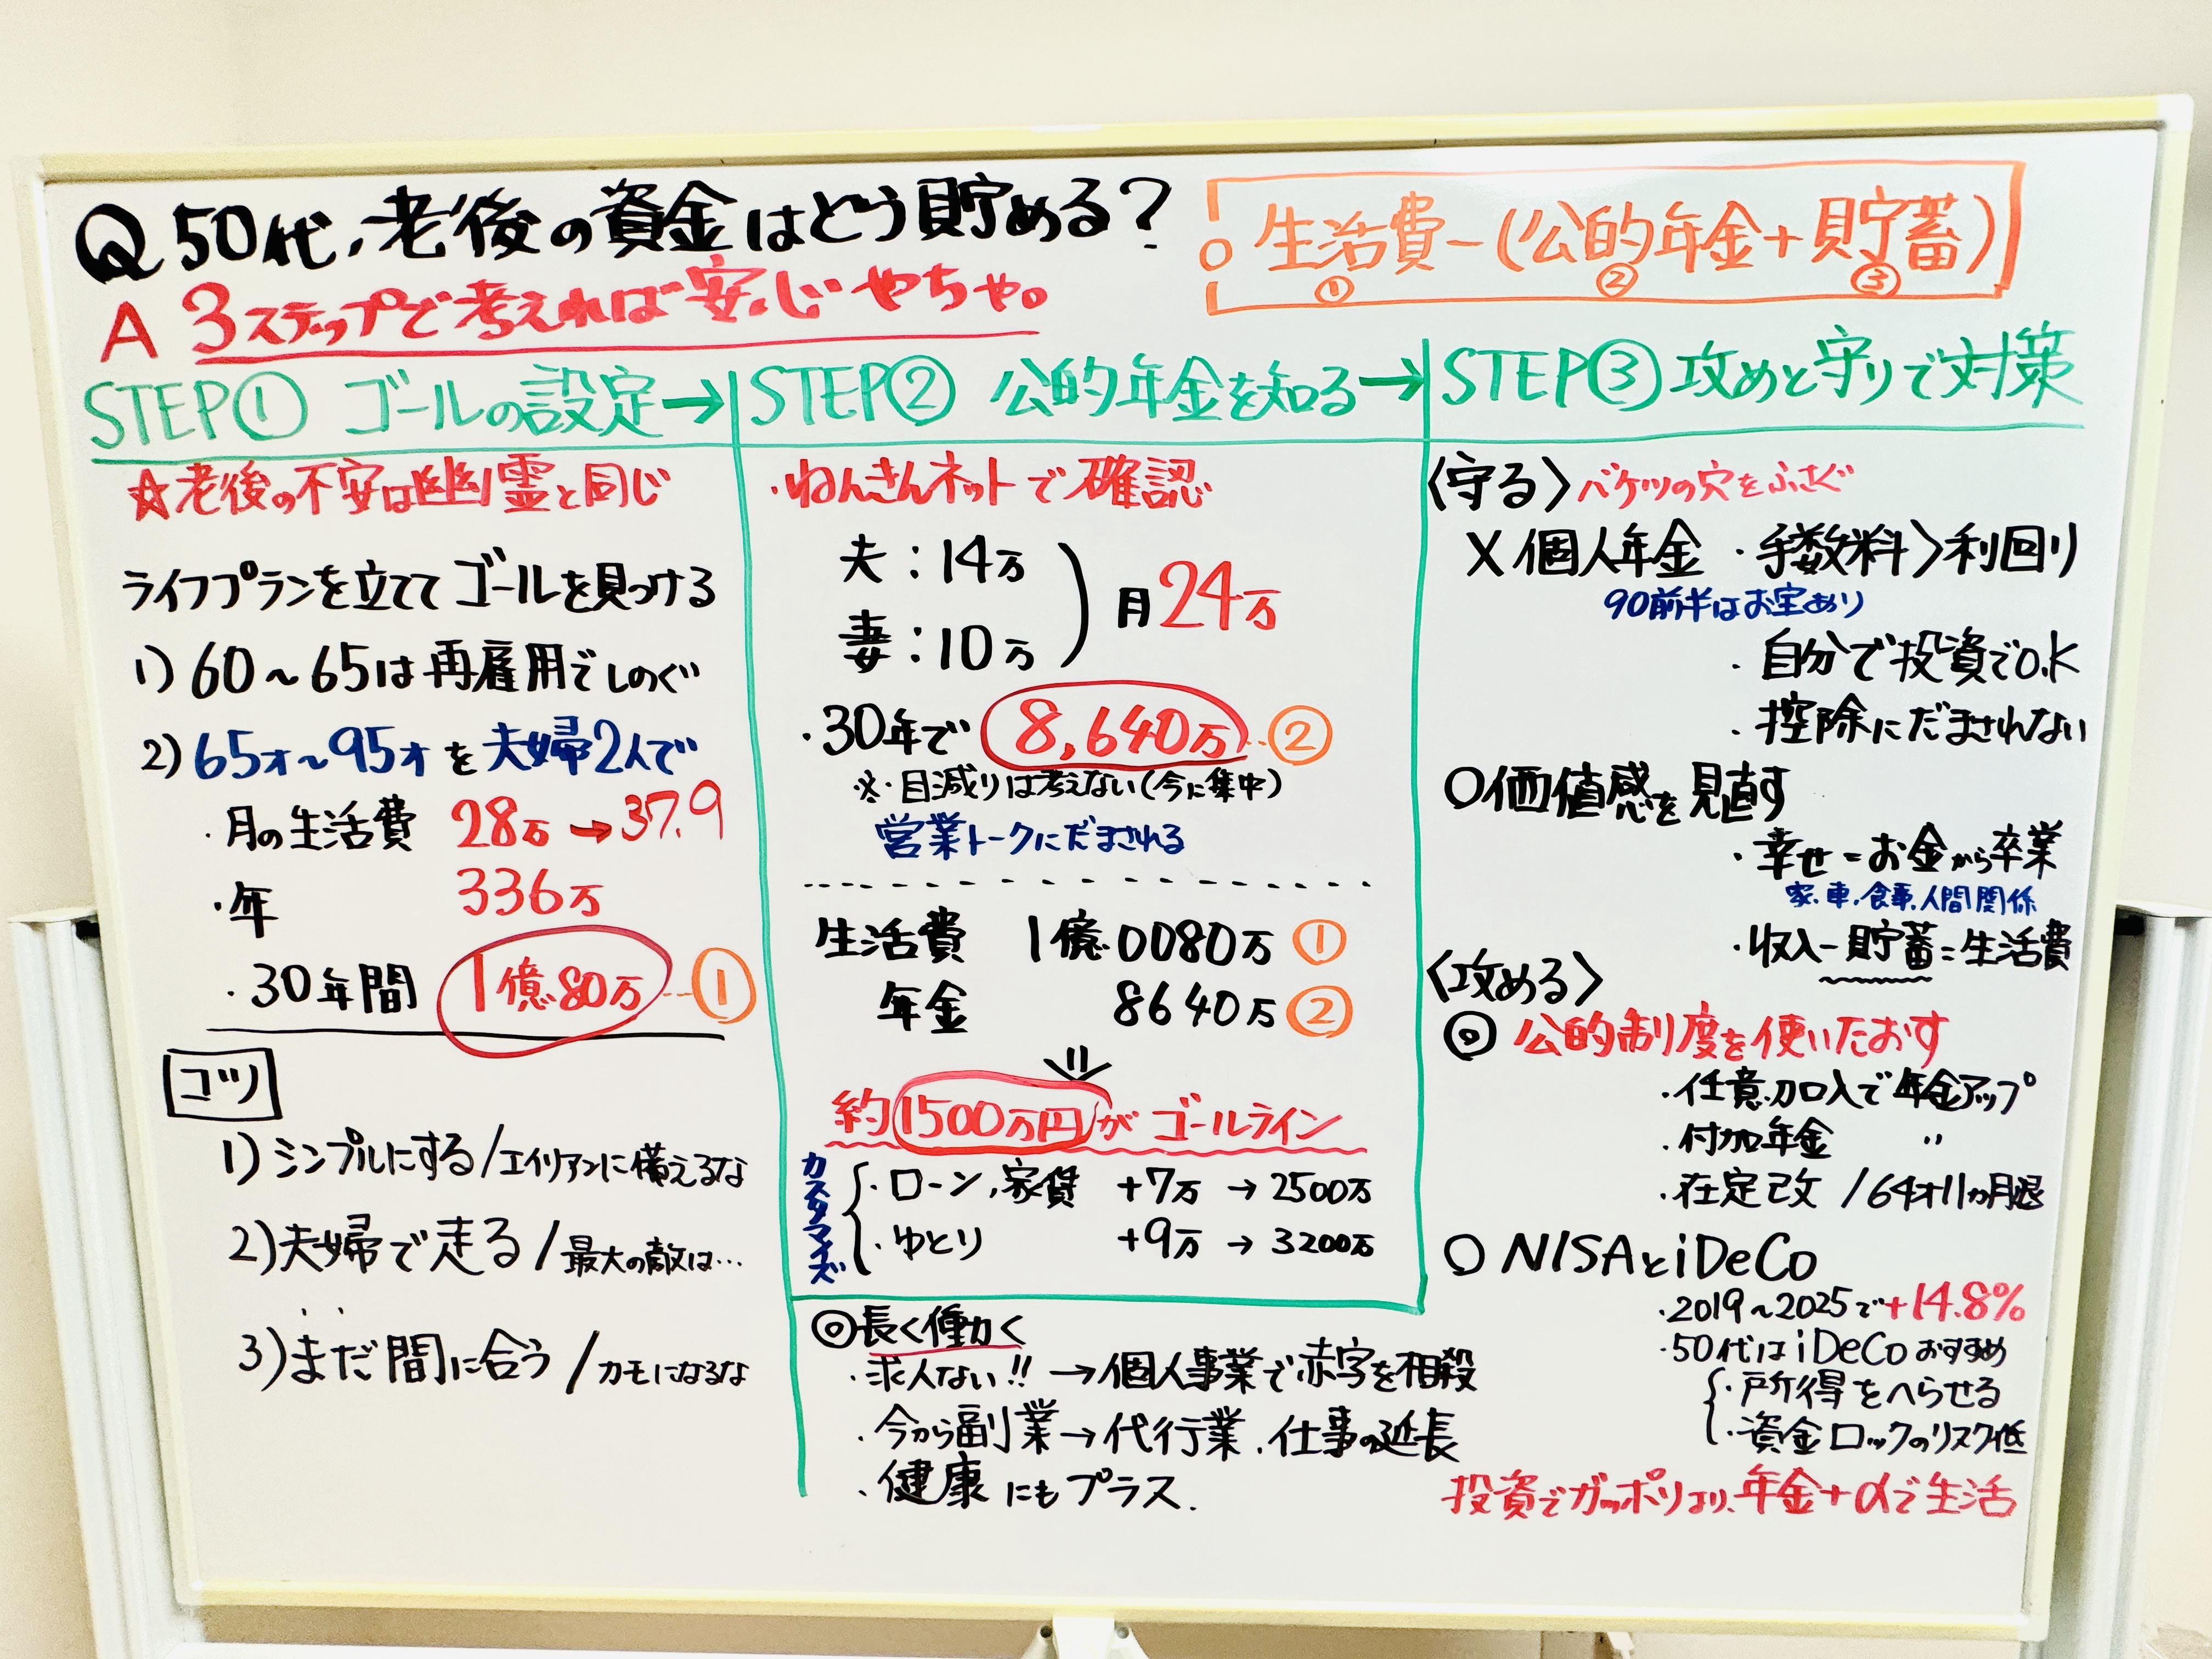 Q 50代、老後の資金はどう貯める?
A 3ステップで考えれば安心やちゃ。
○ 生活費-(公的年金+貯蓄)
① ② ③
STEP① ゴールの設定→
☆老後の不安は幽霊と同じ
ライフプランを立ててゴールを見つける
1) 60~65は再雇用でしのぐ
2) 65才~95才を夫婦2人で
・月の生活費 28万→37.9
・年 336万
・30年間 1億80万…①
コツ
1) シンプルにする/エイリアンに備えるな
2) 夫婦で走る/最大の敵は…
3) まだ間に合う/カモになるな
STEP② 公的年金を知る→
・ねんきんネットで確認
夫:14万
妻:10万
月24万
・30年で 8,640万…②
※・目減りは考えない(今に集中)
営業トークにだまされる
生活費 1億0080万 ①
年金 8640万 ②
約1500万円がゴールライン
カスタマイズ
・ローン、家賃 +7万 → 2500万
・ゆとり +9万 → 3200万
◎長く働く
・求人ない!! →個人事業で赤字を相殺
・今から副業→代行業、仕事の延長
・健康にもプラス.
STEP③ 攻めと守りで対策
〈守る〉バケツの穴をふさぐ
X 個人年金 ・手数料>利回り
90前半はお宝あり
・自分で投資でO.K
・控除にだまされない
○価値感を見直す
・幸せ=お金から卒業
家、車、食事、人間関係
・収入-貯蓄=生活費
〈攻める〉
◎ 公的制度を使いたおす
・任意加入で年金アップ
・付加年金 〃
・在定改 /64才11ヵ月退
○ NISAとiDeCo
・2019~2025で+14.8%
・50代はiDeCoおすすめ
・所得をへらせる
・資金ロックのリスク低
投資でガッポリより、年金+αで生活